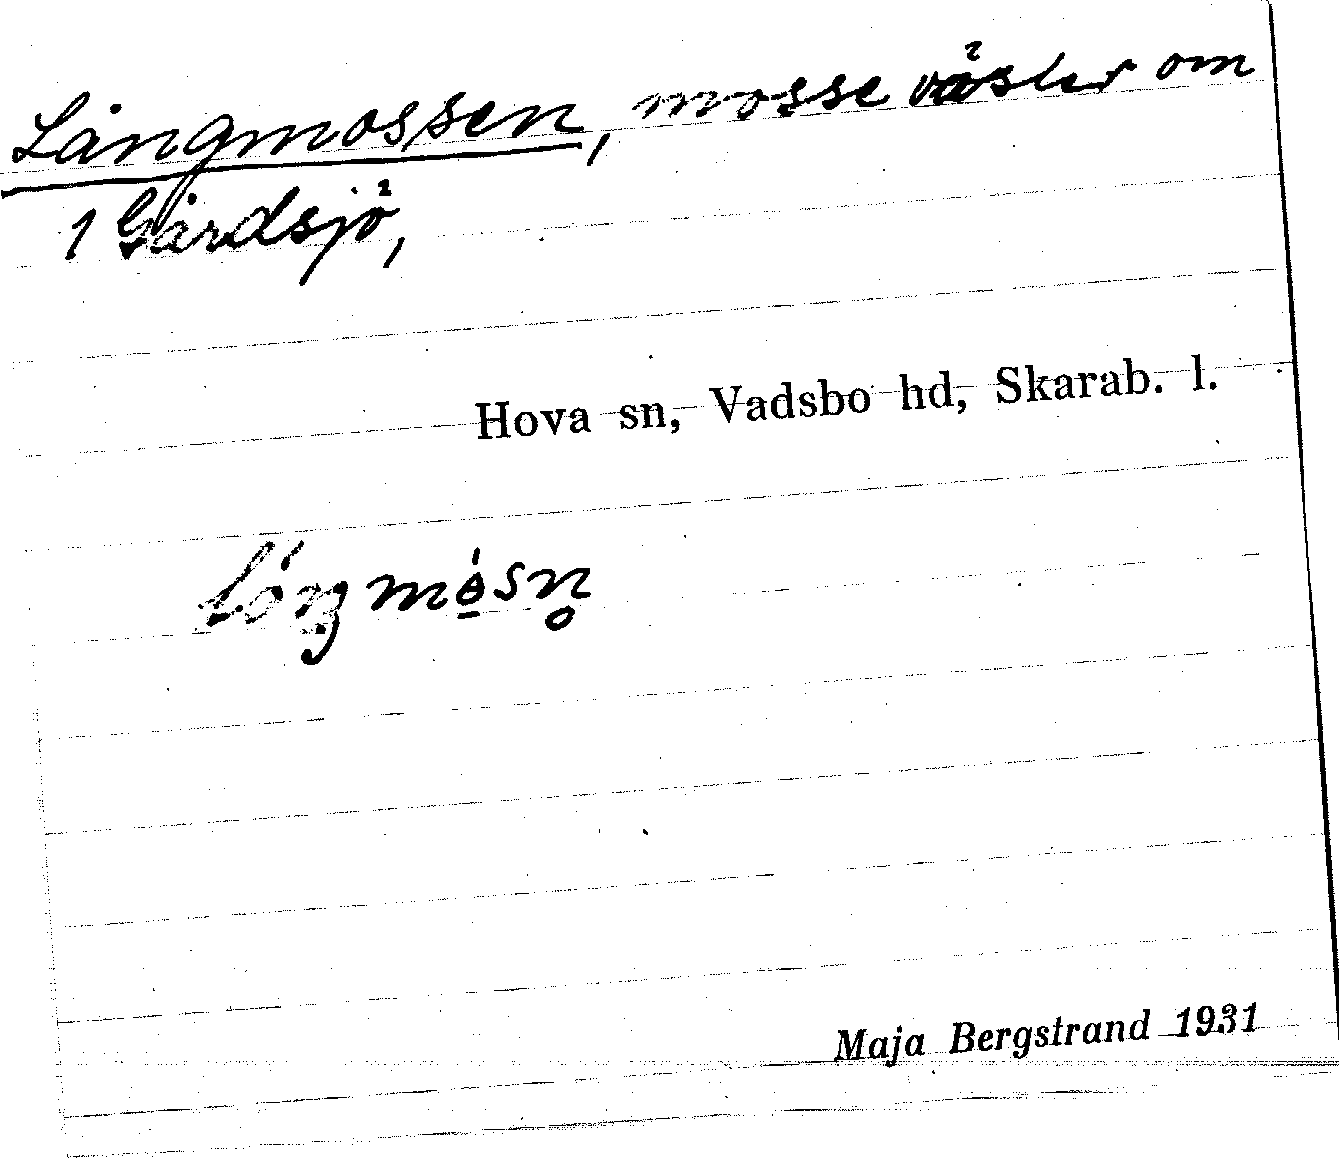 Långmossen, mosse väster om
1 Gårdsjö,
Hova sn, Vadsbo hd, Skarab. l.
lóŋmò̱sn̥
Maja Bergstrand 1931